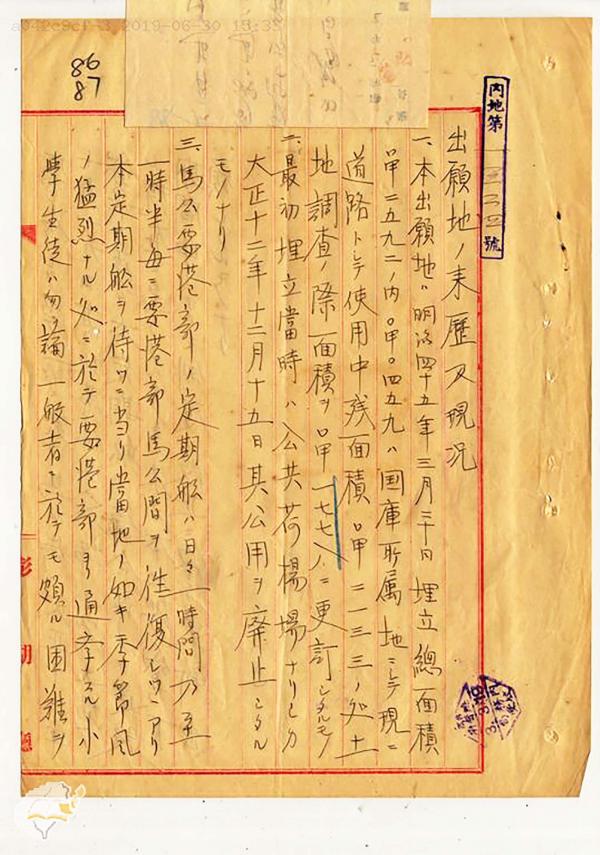 86
87
內地第一三二四號
出願地ノ来歴及現況
一、本出願地ハ明治四十五年三月三十日埋立總面積
甲二五九二ノ内〇甲〇四五九ハ国庫所属地ニシテ現ニ
道路トシテ使用中残面積〇甲二一三三ノ処土
地調査ノ際面積ヲ〇甲一七七八ニ更訂シタルモノ
二、最初埋立當時ハ公共荷揚場ナリシカ
大正十二年十二月十五日其公用ヲ廃止シタル
モノナリ
三、馬公要港部ノ定期船ハ日々一時間乃至
一時半毎ニ要港部馬公間ヲ往復シツヽアリ
本定期船ヲ待ツニ当リ當地ノ如キ季節風
ノ猛烈ナル処ニ於テ要港部ヨリ通学スル小
學生徒ハ勿論一般者ニ於テモ頗ル困難ヲ